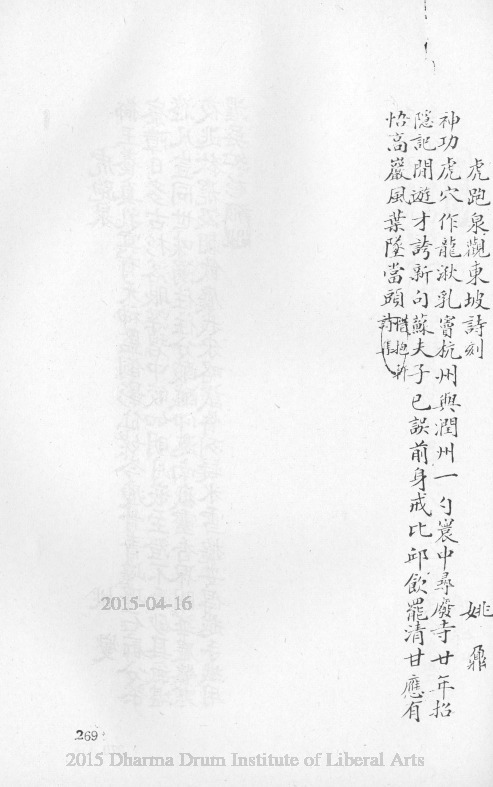 虎跑泉觀東坡詩刻 姚鼐
神功虎穴作龍湫乳竇杭州與潤州一勺寰中尋廢寺廿年招
隱記閒遊才誇新句蘇夫子已誤前身戒比邱飲罷清甘應有
悟高巖風葉墜當頭
惜抱軒
詩集
2015-04-16
269
2015 Dharma Drum Institute of Liberal Arts